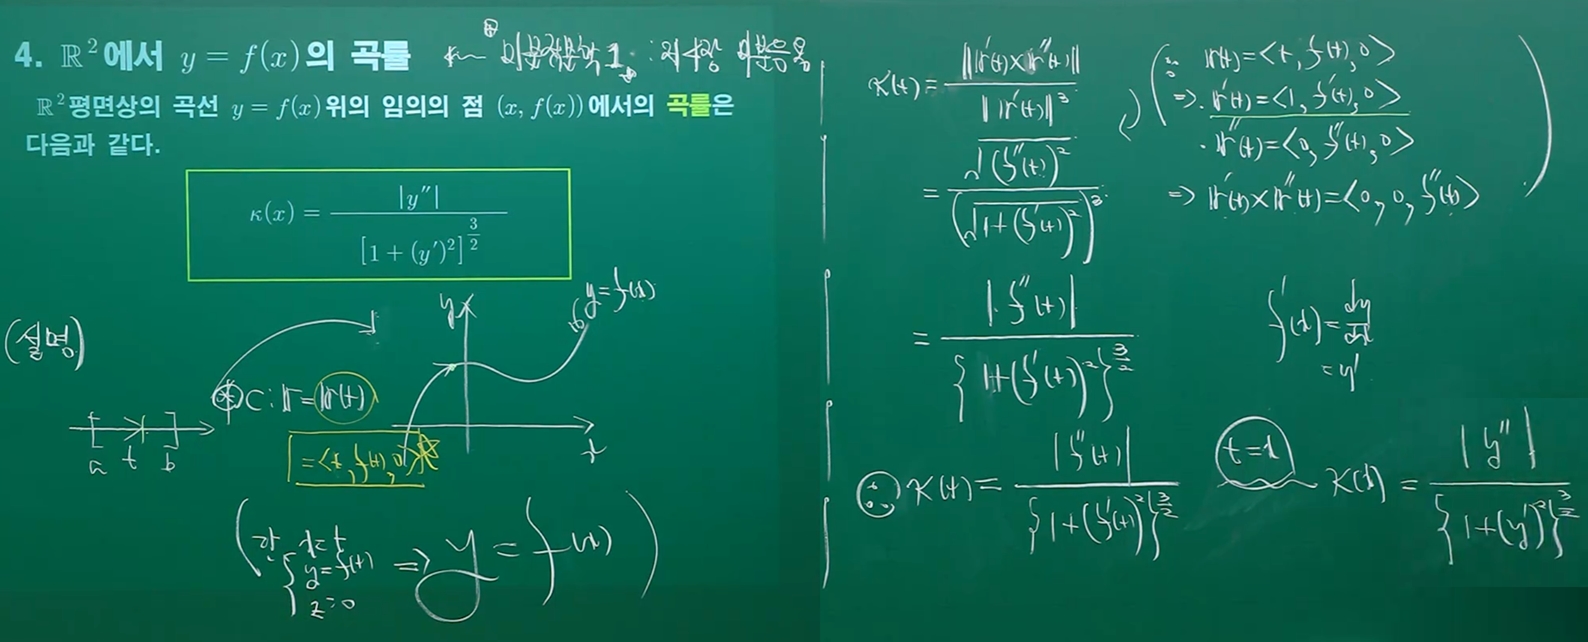 4. ℝ²에서 y = f(x)의 곡률
ℝ²평면상의 곡선 y = f(x)위의 임의의 점 (x, f(x))에서의 곡률은
다음과 같다.
κ(x) = |y″| / [1 + (y′)²]^(3/2)
(설명)
y
y=f(x)
C : r = r(t)
= <t, f(t), 0>
a t b
x
x=t
y=f(t)
z=0
⇒ y = f(x)
κ(t) = ||r′(t)×r″(t)|| / ||r′(t)||³
= √(f″(t))² / (√1+(f′(t))²)³
= |f″(t)| / {1+(f′(t))²}^(3/2)
∴ κ(t) = |f″(t)| / {1+(f′(t))²}^(3/2)
r(t) = <t, f(t), 0>
⇒ · r′(t) = <1, f′(t), 0>
· r″(t) = <0, f″(t), 0>
⇒ r′(t)×r″(t) = <0, 0, f″(t)>
f′(x) = dy/dx
= y′
t=x
κ(x) = |y″| / {1+(y′)²}^(3/2)